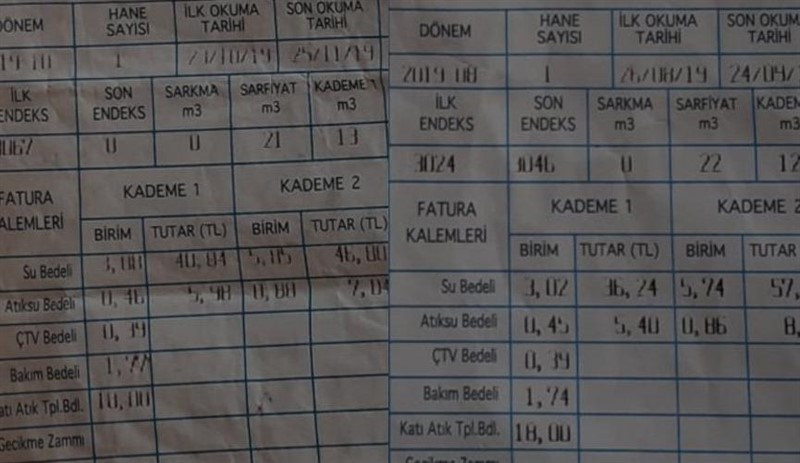 DÖNEM HANE SAYISI İLK OKUMA TARİHİ SON OKUMA TARİHİ
1
İLK ENDEKS SON ENDEKS SARKMA m3 SARFİYAT m3 KADEME 1 m3
0 0 21 13
FATURA KALEMLERİ KADEME 1 KADEME 2
BİRİM TUTAR (TL) BİRİM TUTAR (TL)
Su Bedeli 3,08 40,84 5,85
Atıksu Bedeli 0,46 5,98 0,88
ÇTV Bedeli 0,39
Bakım Bedeli 1,77
Katı Atık Tpl.Bdl. 18,00
Gecikme Zammı
DÖNEM HANE SAYISI İLK OKUMA TARİHİ SON OKUMA TARİHİ
2019-08 1 26/08/19 24/09/
İLK ENDEKS SON ENDEKS SARKMA m3 SARFİYAT m3 KADEM m3
3024 3046 0 22 12
FATURA KALEMLERİ KADEME 1 KADEME 2
BİRİM TUTAR (TL) BİRİM TUTAR
Su Bedeli 3,02 36,24 5,74 57,
Atıksu Bedeli 0,45 5,40 0,86 8,
ÇTV Bedeli 0,39
Bakım Bedeli 1,74
Katı Atık Tpl.Bdl. 18,00